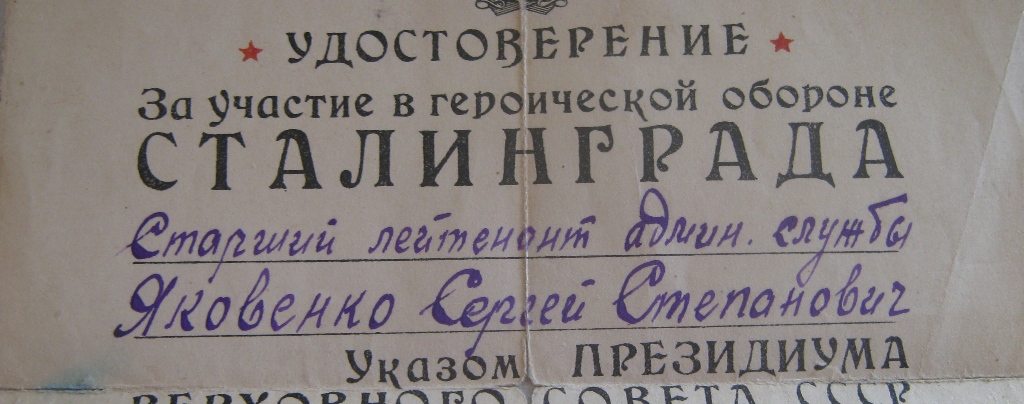 УДОСТОВЕРЕНИЕ
За участие в героической обороне
СТАЛИНГРАДА
Старший лейтенант админ. службы
Яковенко Сергей Степанович
Указом ПРЕЗИДИУМА
ВЕРХОВНОГО СОВЕТА СССР